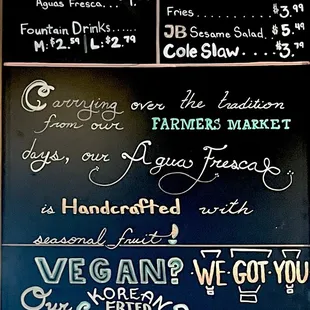 Aguas Fresca...
Fountain Drinks.....
M: $2.59 | L: $2.79
Fries.............$3.99
JB Sesame Salad.. $5.49
Cole Slaw.... $3.79
Carrying over the tradition
from our FARMERS MARKET
days, our Agua Frescas
is Handcrafted with
seasonal fruit!
VEGAN? WE GOT YOU
Our KOREAN
FRIED